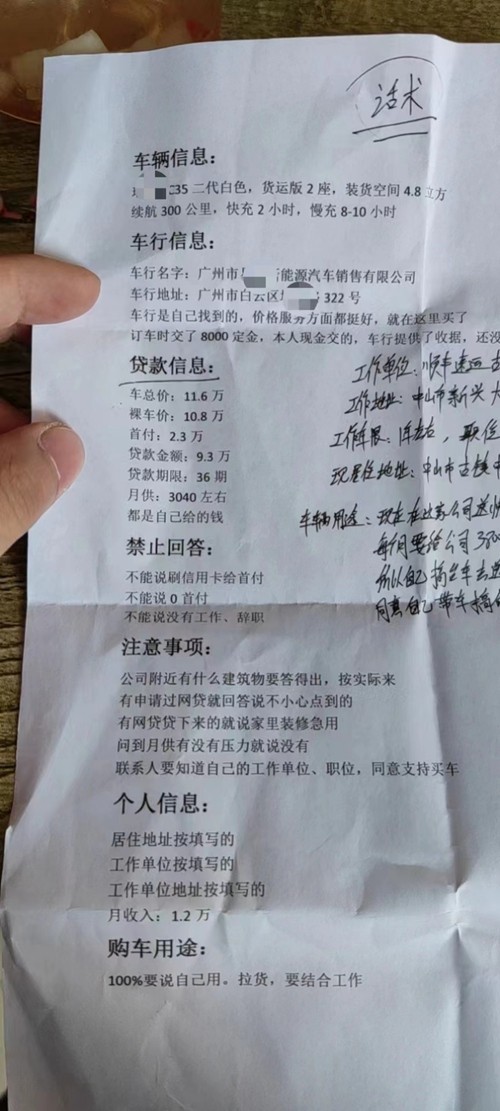 话术
车辆信息:
235 二代白色，货运版 2 座，装货空间 4.8 立方
续航 300 公里，快充 2 小时，慢充 8-10 小时
车行信息:
车行名字：广州市 能源汽车销售有限公司
车行地址：广州市白云区 322 号
车行是自己找到的，价格服务方面都挺好，就在这里买了
订车时交了 8000 定金，本人现金交的，车行提供了收据，还没
贷款信息:
车总价：11.6 万
裸车价：10.8 万
首付：2.3 万
贷款金额：9.3 万
贷款期限：36 期
月供：3040 左右
都是自己给的钱
工作单位：顺丰速运
工作地址：中山市新兴大
现居住地址：中山市古镇
车辆用途：现在在这家公司送
每月要给公司
所以自己搞台车去送
同意自己带车搞
禁止回答:
不能说刷信用卡给首付
不能说 0 首付
不能说没有工作、辞职
注意事项:
公司附近有什么建筑物要答得出，按实际来
有申请过网贷就回答说不小心点到的
有网贷贷下来的就说家里装修急用
问到月供有没有压力就说没有
联系人要知道自己的工作单位、职位，同意支持买车
个人信息:
居住地址按填写的
工作单位按填写的
工作单位地址按填写的
月收入：1.2 万
购车用途:
100%要说自己用。拉货，要结合工作